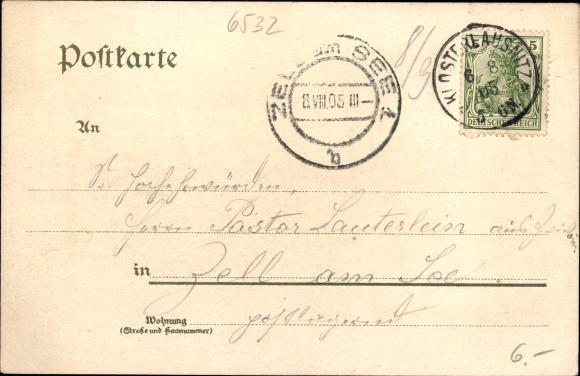 6532
Postkarte
8/9
ZELL am SEE 1
8.VIII.05 III-
b
KLOSTERLAUSNITZ
6 8
05
5-6N.
5
DEUTSCHES REICH
An
Sr. Hochehrwürden,
Herrn Pastor Lauterlein aus
in Zell am See.
postlagernd
Wohnung
(Straße und Hausnummer)
6.-